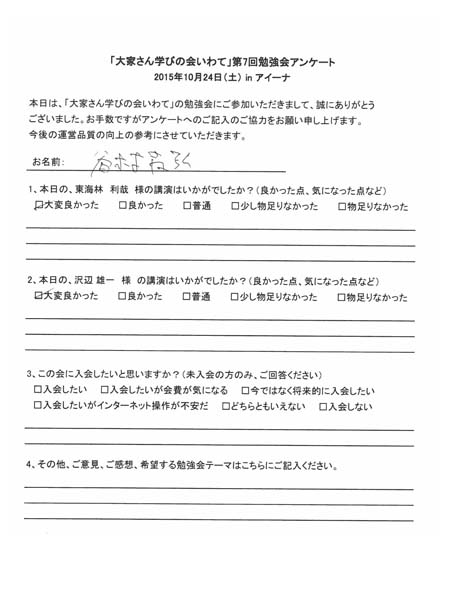 「大家さん学びの会いわて」第7回勉強会アンケート
2015年10月24日(土) in アイーナ
本日は、「大家さん学びの会いわて」の勉強会にご参加いただきまして、誠にありがとう
ございました。お手数ですがアンケートへのご記入のご協力をお願い申し上げます。
今後の運営品質の向上の参考にさせていただきます。
お名前:
1、本日の、東海林 利哉 様の講演はいかがでしたか?(良かった点、気になった点など)
☑大変良かった □良かった □普通 □少し物足りなかった □物足りなかった
2、本日の、沢辺 雄一 様 の講演はいかがでしたか?(良かった点、気になった点など)
☑大変良かった □良かった □普通 □少し物足りなかった □物足りなかった
3、この会に入会したいと思いますか?(未入会の方のみ、ご回答ください)
□入会したい □入会したいが会費が気になる □今ではなく将来的に入会したい
□入会したいがインターネット操作が不安だ □どちらともいえない □入会しない
4、その他、ご意見、ご感想、希望する勉強会テーマはこちらにご記入ください。